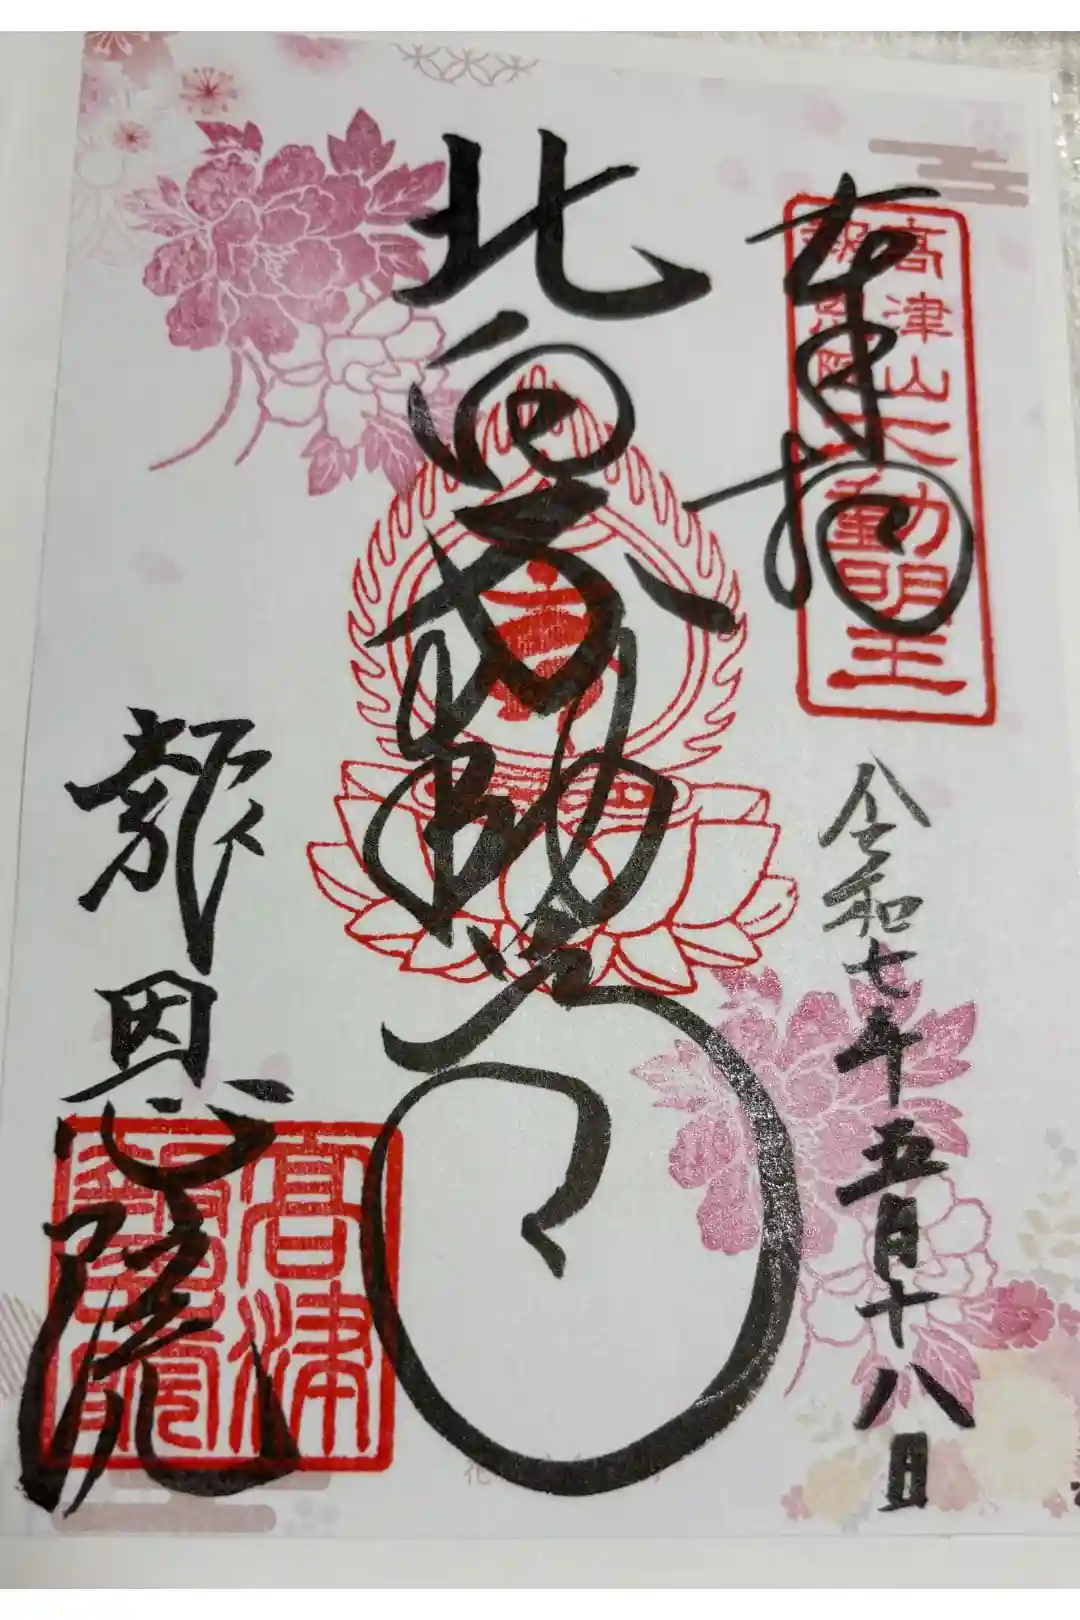 奉拝
高津山
報恩院
不動明王
令和七年五月十八日
北向不動尊
報恩院
高津
報恩院